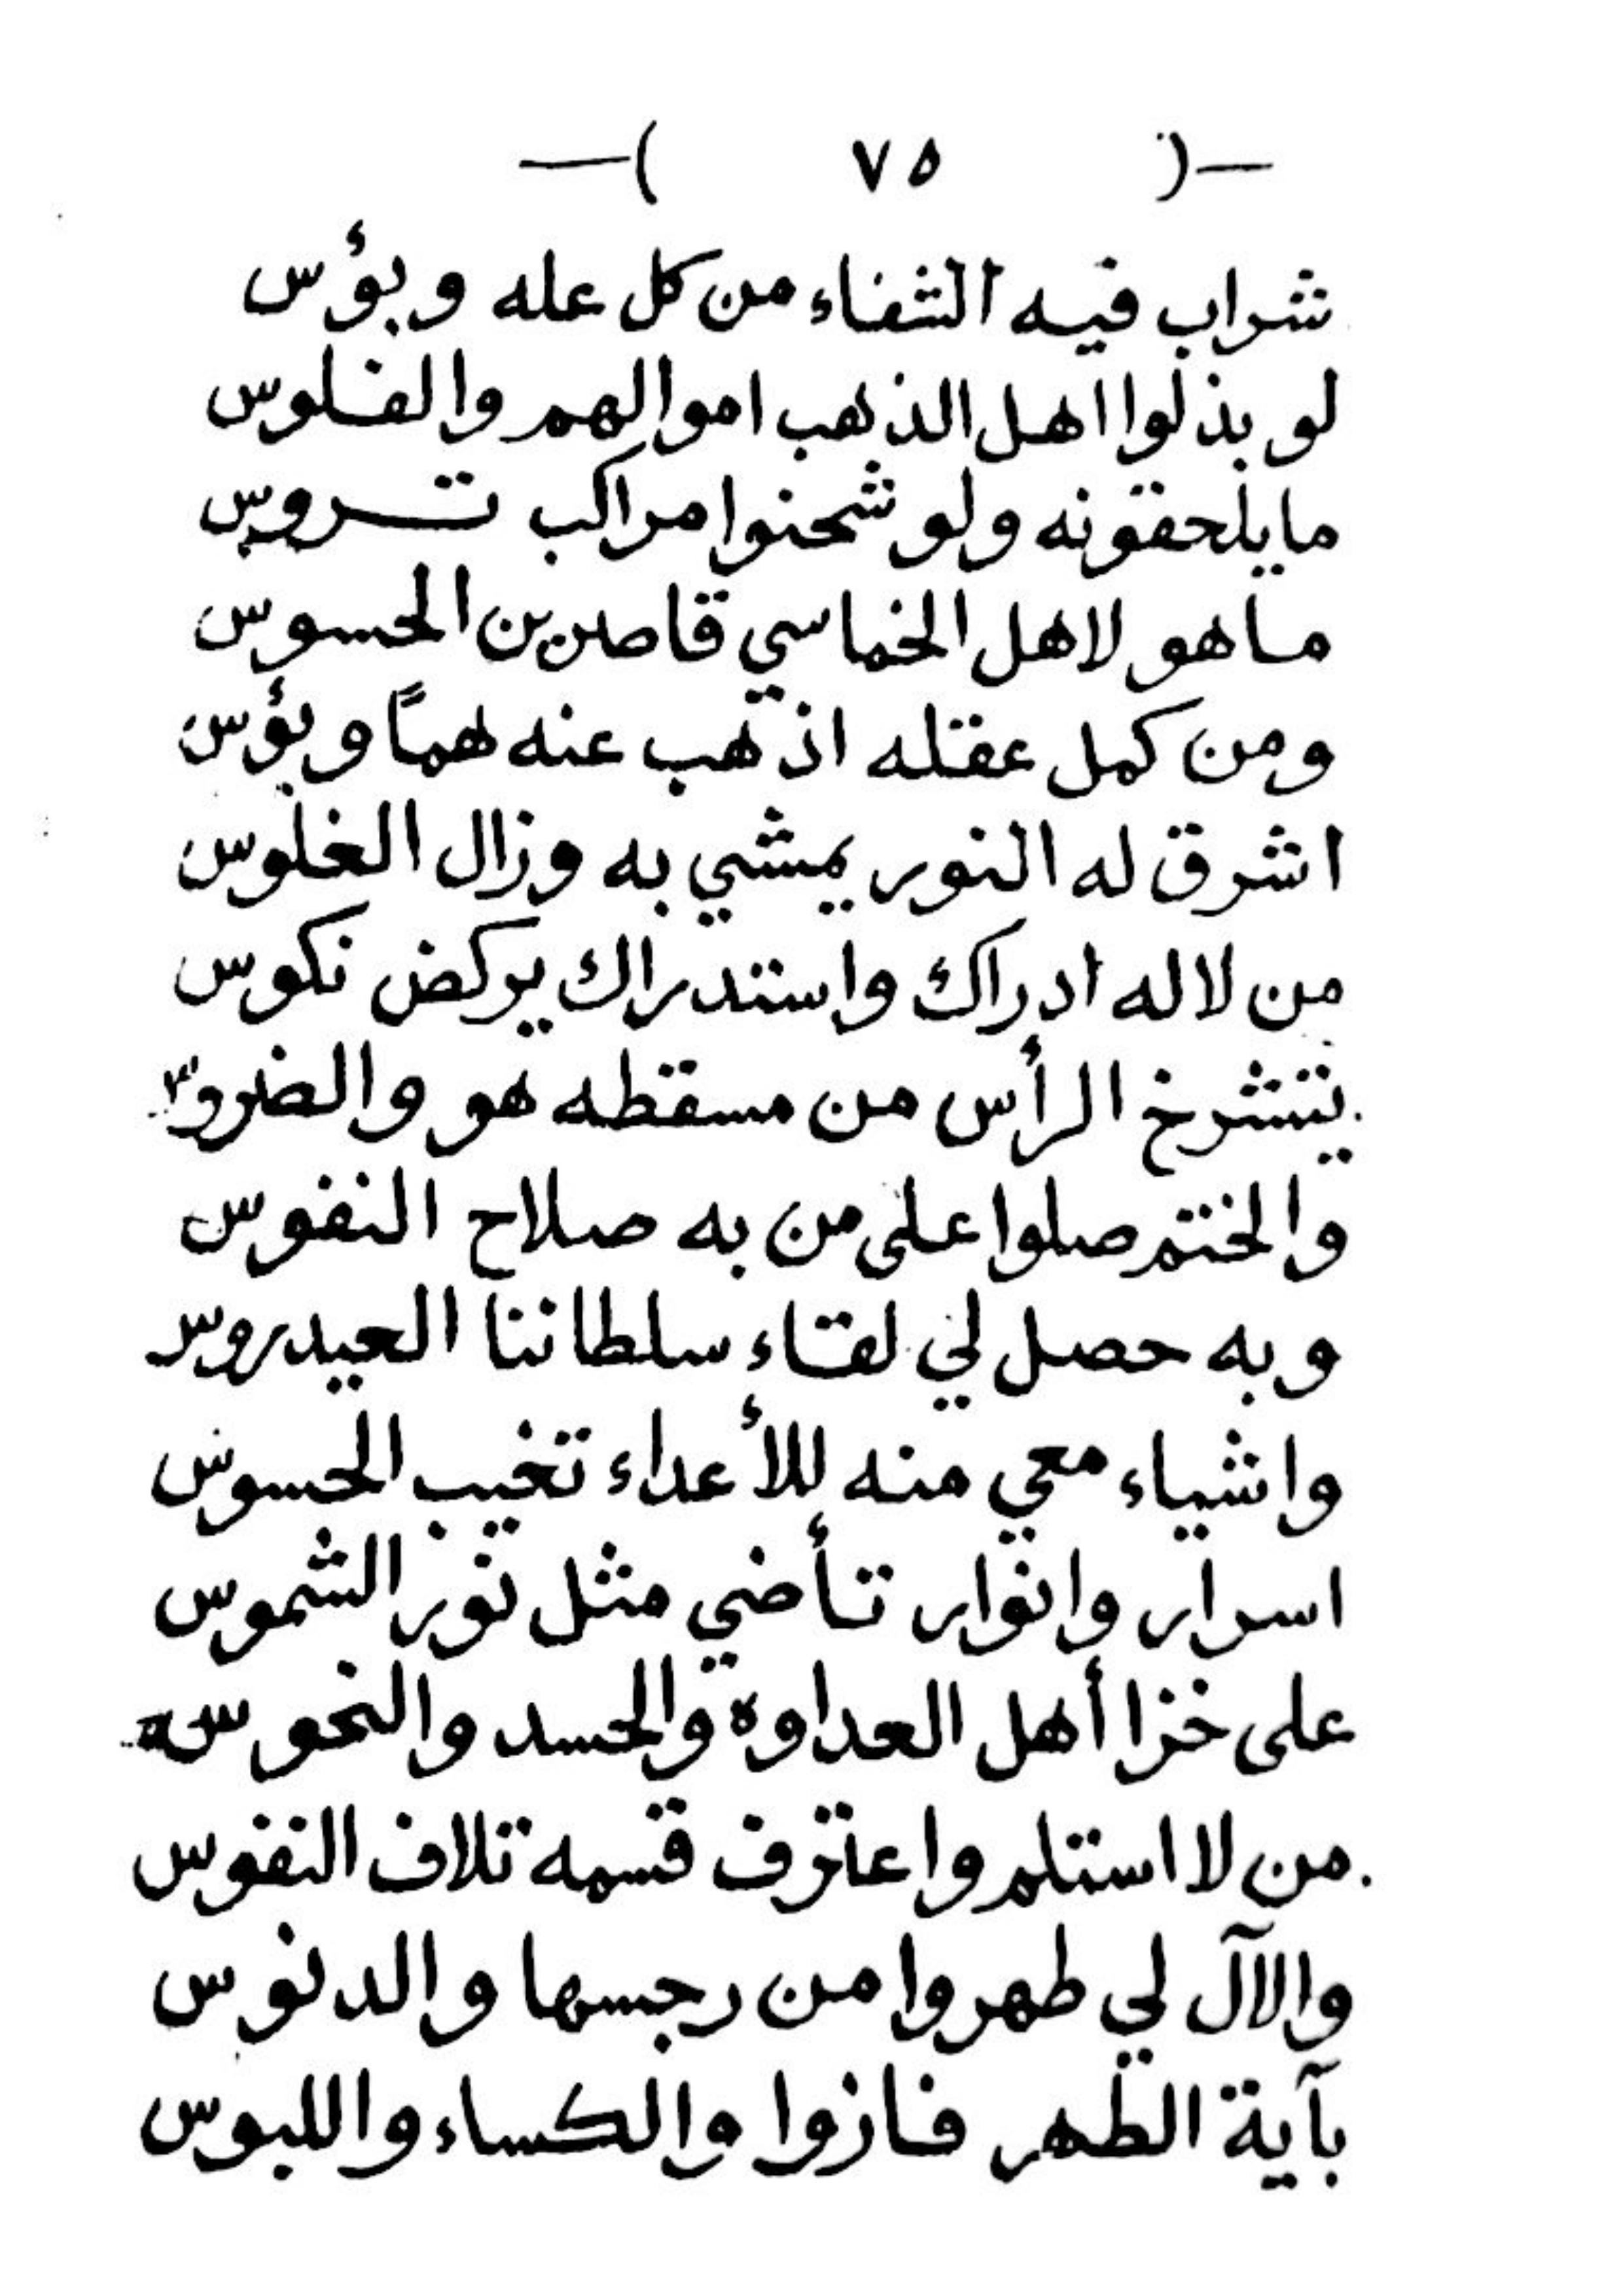 —( ٧٥ )—
شراب فيه الشفاء من كل عله وبؤس
لو بذلوا اهل الذهب اموالهم والفلوس
مايلحقونه ولو شحنوا مراكب تروس
ماهو لاهل الخماسي قاصرين الحسوس
ومن كمل عقله اذهب عنه همًا وبؤس
اشرق له النور يمشي به وزال الغلوس
من لاله ادراك واستدراك يركض نكوس
يتشرخ الرأس من مسقطه هو والضروس
والختم صلوا على من به صلاح النفوس
وبه حصل لي لقاء سلطاننا العيدروس
واشياء معي منه للأعداء تخيب الحسوس
اسرار وانوار تأضي مثل نور الشموس
على خزا أهل العداوة والحسد والنحوس
من لا استلم واعترف قسمه تلاف النفوس
والآل لي طهروا من رجسها والدنوس
بآية الطهر فازوا والكساء واللبوس